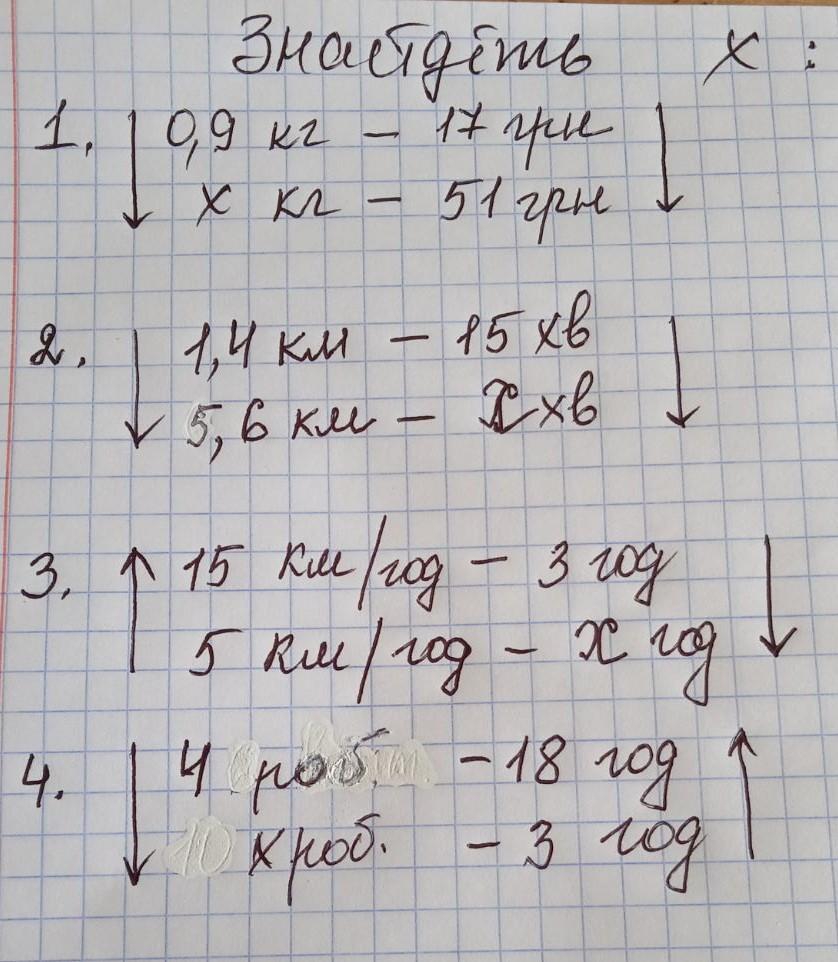 Знайдіть х :
1. 0,9 кг – 17 грн
х кг – 51 грн
2. 1,4 км – 15 хв
5,6 км – х хв
3. 15 км/год – 3 год
5 км/год – х год
4. 4 роб. – 18 год
х роб. – 3 год